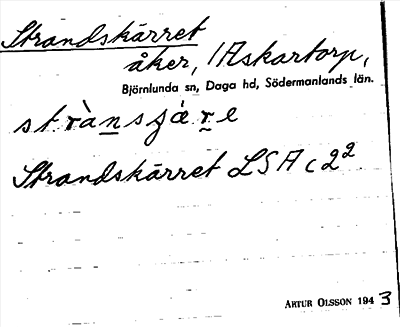 Strandskärret
åker, /Askartorp,
Björnlunda sn, Daga hd, Södermanlands län.
Strandskärret LSA c 2²
ARTUR OLSSON 1943